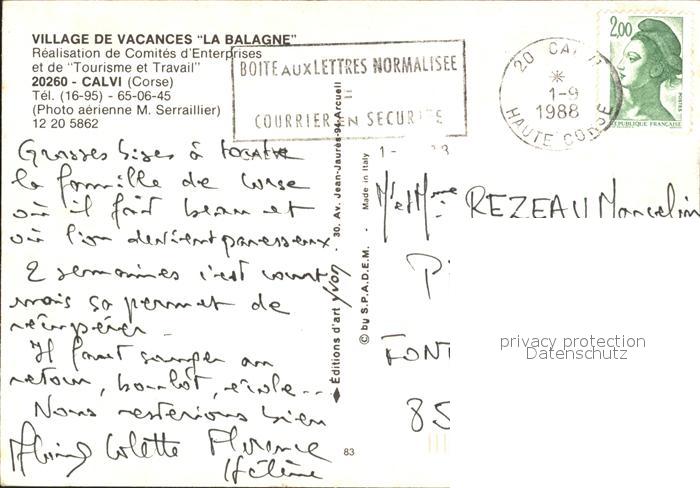 VILLAGE DE VACANCES "LA BALAGNE"
Réalisation de Comités d'Enterprises
et de "Tourisme et Travail"
20260 - CALVI (Corse)
Tél. (16-95) - 65-06-45
(Photo aérienne M. Serraillier)
12 20 5862
BOITE AUX LETTRES NORMALISEE
=
COURRIER EN SECURITE
20 CALVI
1-9
1988
HAUTE CORSE
2,00
POSTES
REPUBLIQUE FRANÇAISE
Grosses bises à toute
la famille de Corse
où il fait beau et
où l'on devient paresseux
2 semaines c'est court
mais ça permet de
récupérer.
Il faut songer au
retour, boulot, école...
Nous resterions bien
Colette Florence
Hélène
Editions d'art yvon - 30, Av. Jean-Jaurès-94-Arcueil
© by S.P.A.D.E.M. - Made in Italy
83
M et Mme REZEAU Marcelin
FONT
85
privacy protection
Datenschutz